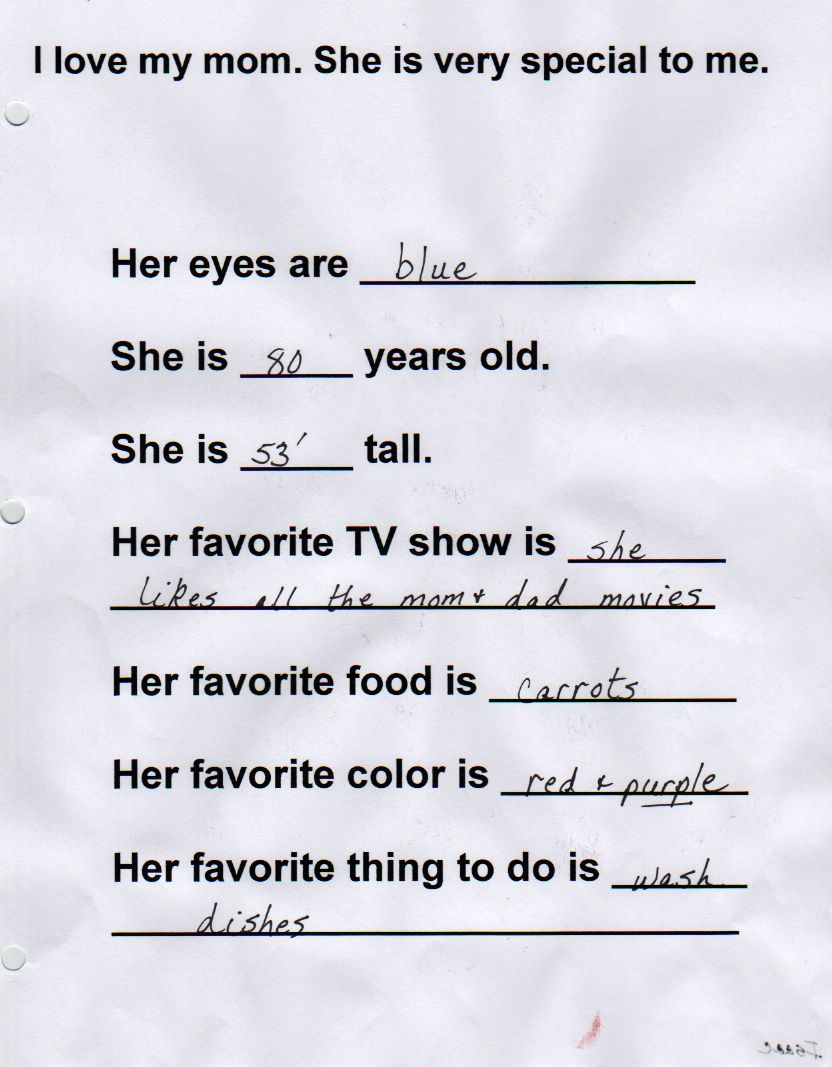 I love my mom. She is very special to me.
Her eyes are blue
She is 80 years old.
She is 53' tall.
Her favorite TV show is she
likes all the mom & dad movies
Her favorite food is carrots
Her favorite color is red & purple
Her favorite thing to do is wash
dishes
Isaac